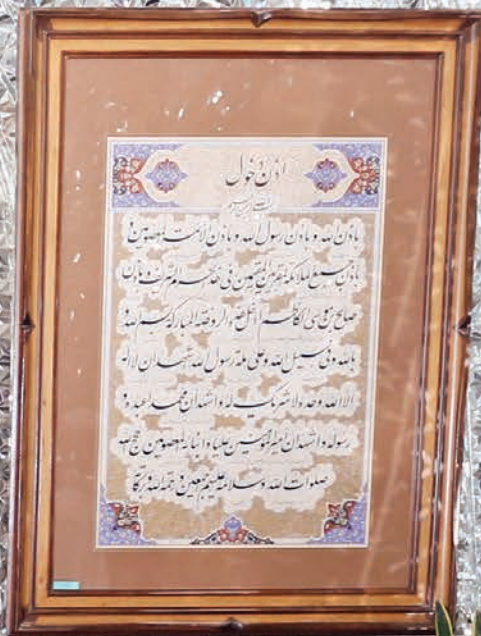 اذن دخول
باذن الله و باذن رسول الله و باذن الائمت المعصومین و
باذن جمیع الملائکه المقربین المقیمین فی هذا حرم الشریف و باذن
صالح بن موسی الکاظم ادخل هذه الروضة المبارکه بسم الله و
بالله و فی سبیل الله و علی ملة رسول الله اشهد ان لا اله
الا الله وحده لا شریک له و اشهد ان محمدا عبده و
رسوله و اشهد ان امیر المومنین علیا و ابنائه المعصومین حجج الله
صلوات الله و سلامه علیهم اجمعین و رحمة الله و برکاته